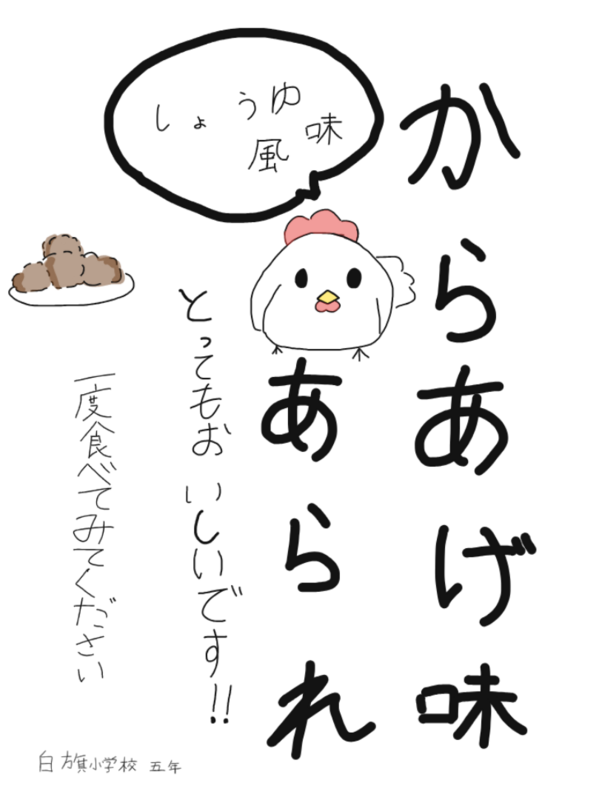 からあげ味
あられ
しょうゆ
風味
とってもおいしいです!!
一度食べてみてください
白旗小学校 五年